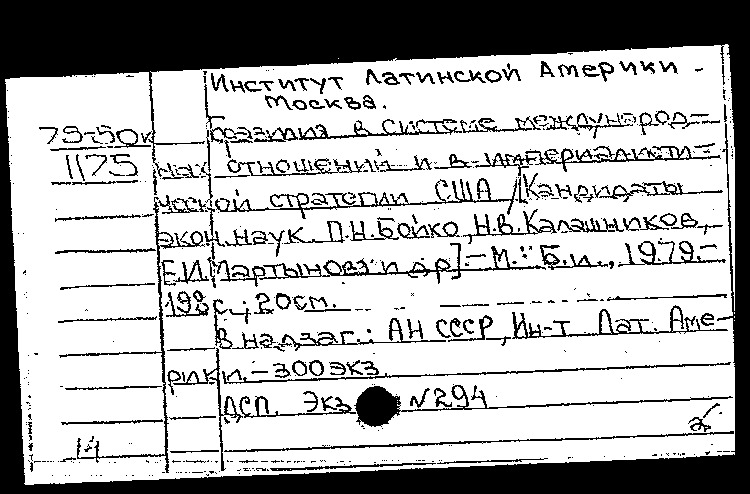 Институт Латинской Америки -
Москва.
79-50к
1175
Бразилия в системе международ-
ных отношений и в империалисти-
ческой стратегии США /[Кандидаты
экон. наук П.Н.Бойко, Н.В.Калашников,
Е.И.Мартынова и др]. - М.: Б.и., 1979.-
198 с.; 20см.
В надзаг.: АН СССР, Ин-т Лат. Аме-
рики. - 300 экз.
ДСП. Экз. N294
14